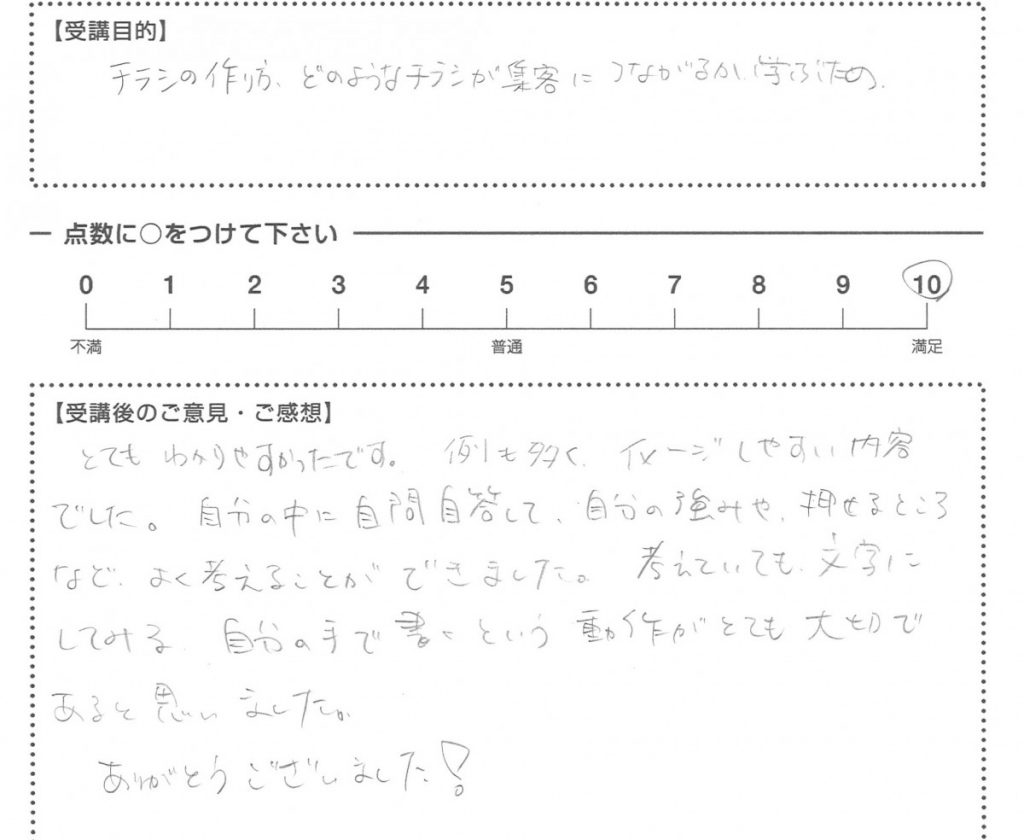 【受講目的】
チラシの作り方、どのようなチラシが集客につながるか、学ぶため。
点数に○をつけて下さい
0 1 2 3 4 5 6 7 8 9 10
不満 普通 満足
【受講後のご意見・ご感想】
とてもわかりやすかったです。例も多く、イメージしやすい内容
でした。自分の中に自問自答して、自分の強みや、押せるところ
など、よく考えることができました。考えていても、文字に
してみる、自分の手で書くという動作がとても大切で
あると思いました。
ありがとうございました!